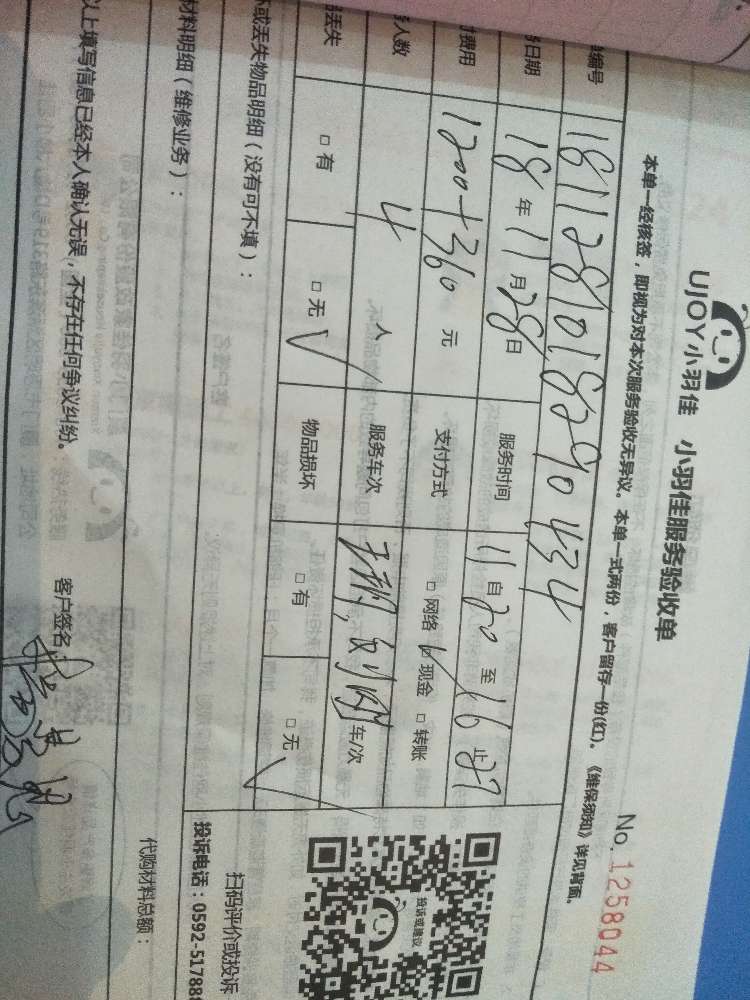 UJOY小羽佳 小羽佳服务验收单
No. 1258044
本单一经核签，即视为对本次服务验收无异议。本单一式两份，客户留存一份(红)。《维保须知》详见背面。
编号 1811281018290434
日期 18年11月28日 服务时间 11自20至16止27
费用 1200+360元 支付方式 □网络 ☑现金 □转账
人数 4人 服务车次 车/次
丢失 □有 □无√ 物品损坏 □有 □无√
或丢失物品明细（没有可不填）：
材料明细（维修业务）：
代购材料总额：
以上填写信息已经本人确认无误，不存在任何争议纠纷。 客户签名
投诉或建议
扫码评价或投诉
投诉电话：0592-51788